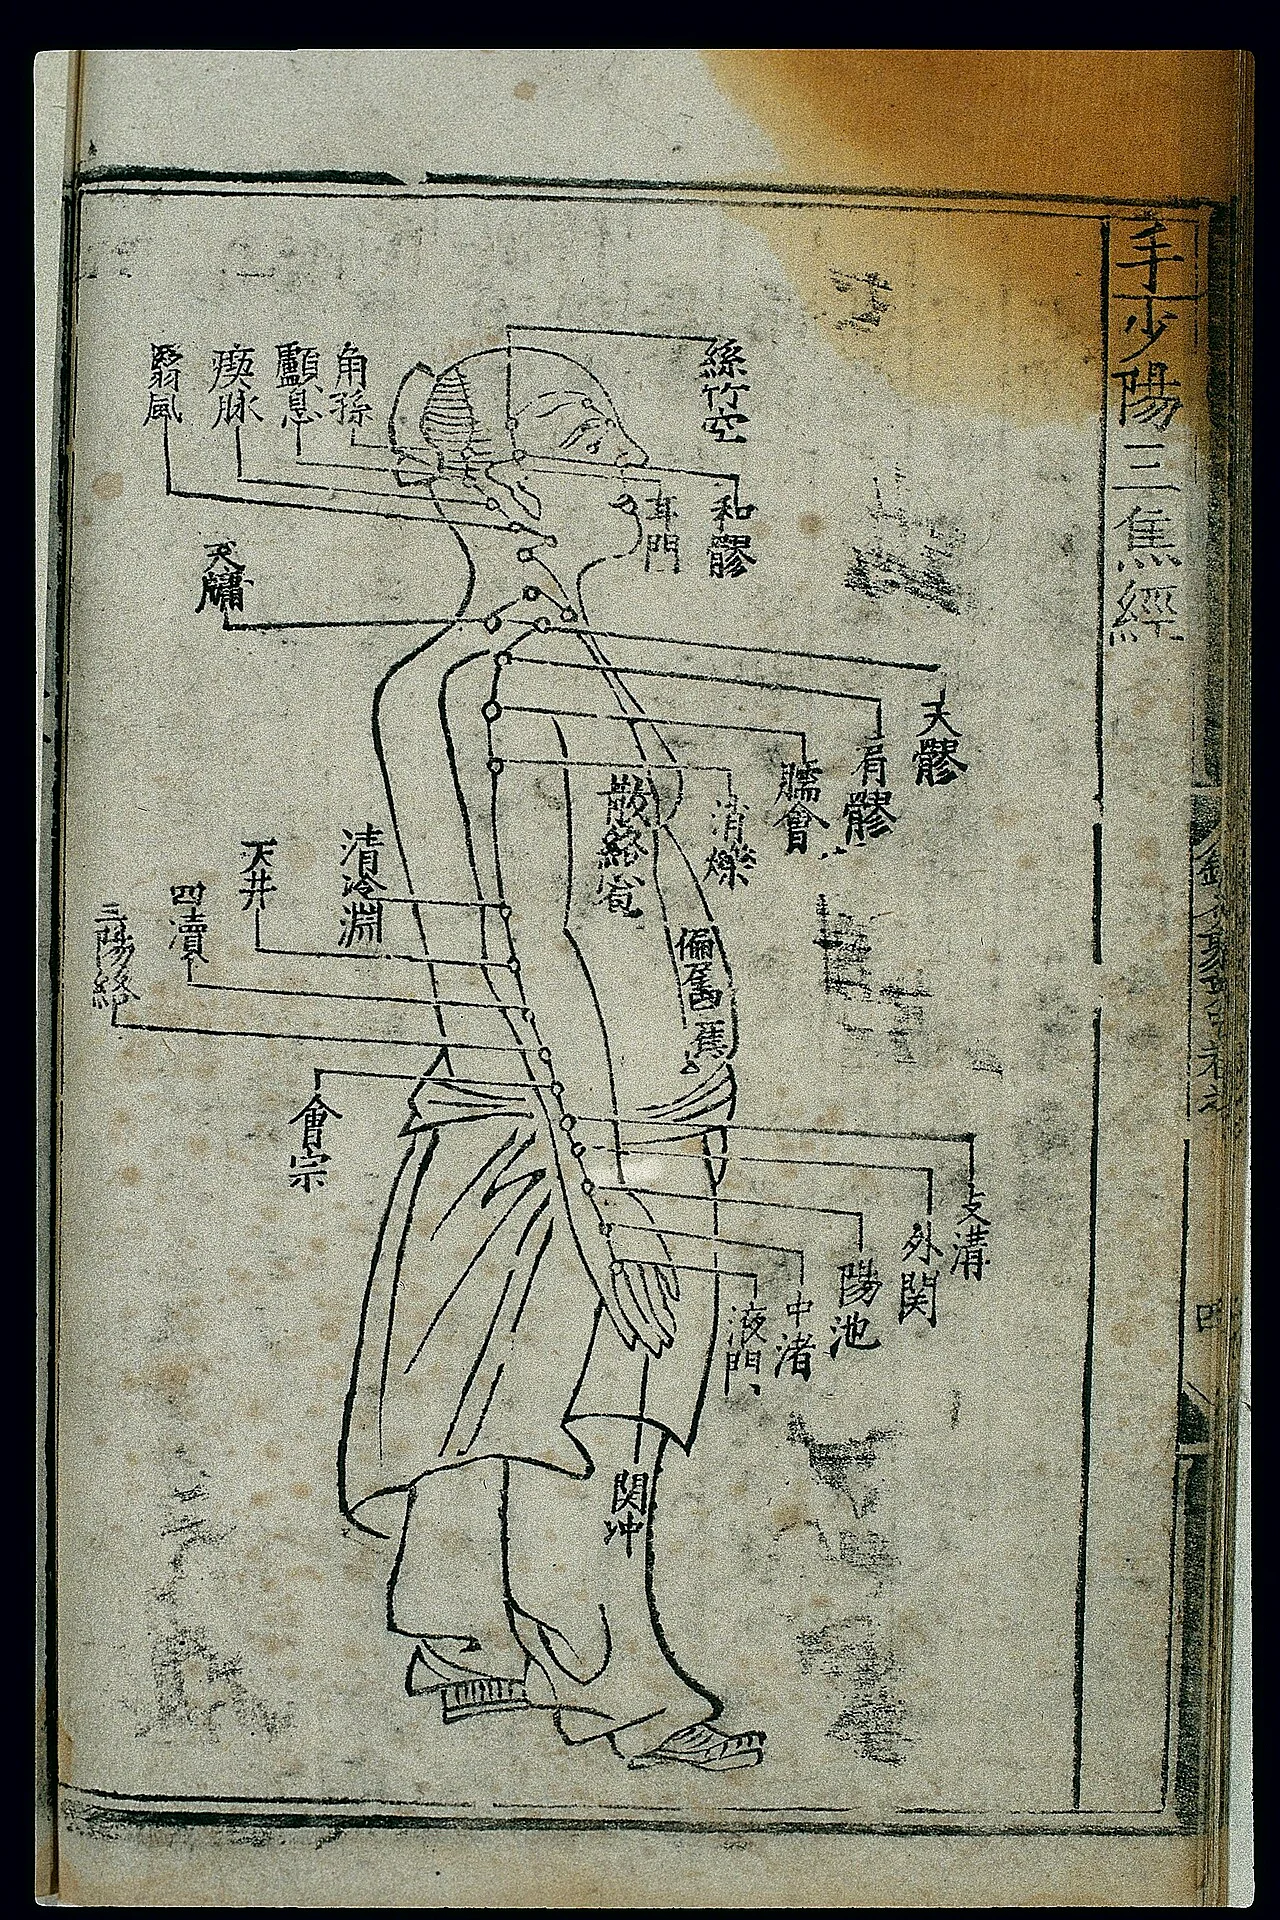 手少陽三焦經
絲竹空
角孫
顱息
瘈脉
翳風
和髎
耳門
天牖
天髎
肩髎
臑會
消爍
散絡宐
清冷淵
天井
四瀆
三陽絡
會宗
支溝
外関
陽池
中渚
液門
関冲
四